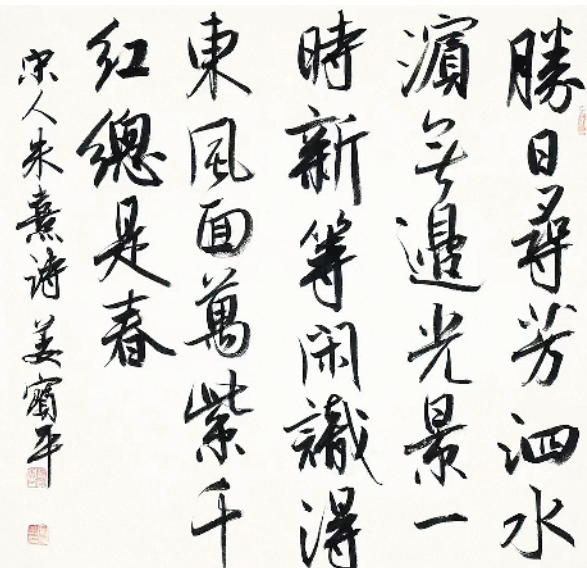 勝日尋芳泗水
濱無邊光景一
時新等閑識得
東風面萬紫千
紅總是春
宋人朱熹詩 姜寶平